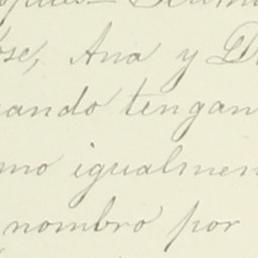 ose, Ana y D
ando tengan
mo igualmen
nombro por